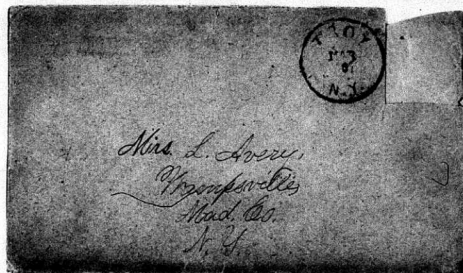 TROY
MAR
N.Y.
Mrs. L. Avery,
Wampsville,
Mad. Co.
N. Y.